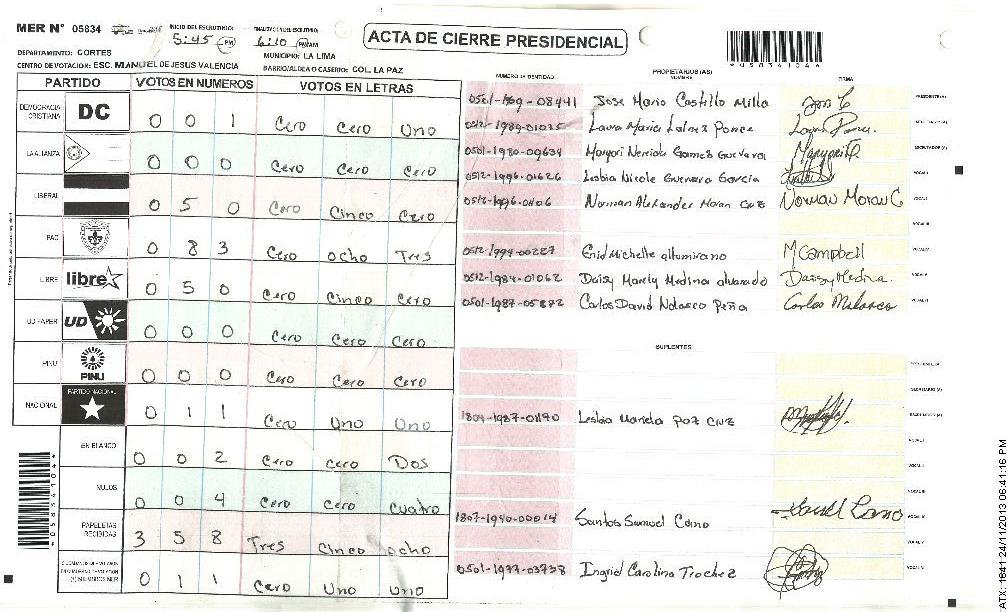 MER N° 05834
INICIO DEL ESCRUTINIO:
5:45 PM
FINALIZACION DEL ESCRUTINIO:
6:10 PM/AM
ACTA DE CIERRE PRESIDENCIAL
DEPARTAMENTO: CORTES
MUNICIPIO: LA LIMA
CENTRO DE VOTACION: ESC. MANUEL DE JESUS VALENCIA
BARRIO/ALDEA O CASERIO: COL. LA PAZ
PARTIDO VOTOS EN NUMEROS VOTOS EN LETRAS
DEMOCRACIA CRISTIANA DC 0 0 1 Cero Cero Uno
LA ALIANZA 0 0 0 Cero Cero Cero
LIBERAL 0 5 0 Cero Cinco Cero
PAC 0 8 3 Cero ocho Tres
LIBRE libre 0 5 0 Cero Cinco Cero
UD FAPER UD 0 0 0 Cero Cero Cero
PINU PINU 0 0 0 Cero Cero Cero
NACIONAL PARTIDO NACIONAL 0 1 1 Cero Uno Uno
EN BLANCO 0 0 2 Cero Cero Dos
NULOS 0 0 4 Cero Cero Cuatro
PAPELETAS RECIBIDAS 3 5 8 Tres Cinco ocho
0 1 1 Cero Uno Uno
PROPIETARIOS (AS)
NUMERO DE IDENTIDAD NOMBRE FIRMA
Jose Mario Castillo Milla PRESIDENTE(A)
Laura Maria Lainez Ponce SECRETARIO(A)
0501-1980-09634 Margori Nereida Gomes Guevara ESCRUTADOR(A)
0512-1996-01626 Lesbia Nicole Guevara Garcia VOCAL I
0512-1996-01106 Norman Alexander Moran Cruz Norman Moran C VOCAL II
VOCAL III
0512-1994-00287 Enid Michelle altumirano M Campbell VOCAL IV
0512-1984-01062 Daisy Marely Medina alvarado Daisy Medina VOCAL V
0501-1987-05872 Carlos David Nolasco Peña Carlos Nolasco VOCAL VI
SUPLENTES
PRESIDENTE(A)
SECRETARIO(A)
1804-1987-01190 Lesbia Mariela Paz Cruz ESCRUTADOR(A)
VOCAL I
VOCAL II
VOCAL III
1807-1990-00014 Santos Samuel Cano VOCAL IV
VOCAL V
0501-1977-03738 Ingrid Carolina Trochez VOCAL VI
ATX: 1641 24/11/2013 06:41:16 PM